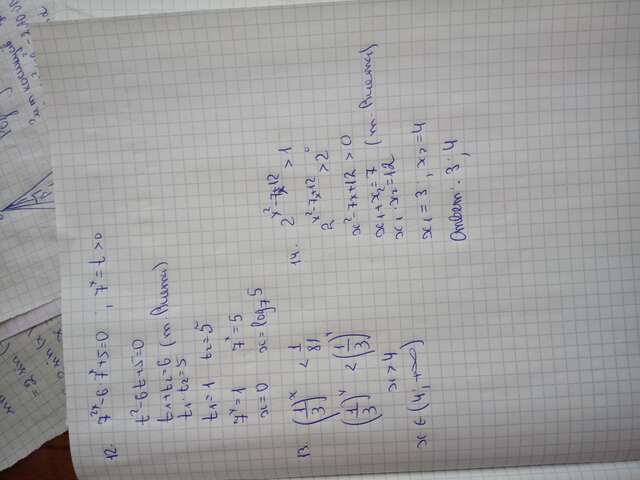 12. 7²ˣ-6·7ˣ+5=0 ; 7ˣ=t >0
t²-6t+5=0
t₁+t₂=6 (т. Виета)
t₁·t₂=5
t₁=1 t₂=5
7ˣ=1 7ˣ=5
x=0 x=log₇5
13. (1/3)ˣ < 1/81
(1/3)ˣ < (1/3)⁴
x>4
x∈(4; +∞)
14. 2^(x²-7x+12) > 1
2^(x²-7x+12) > 2⁰
x²-7x+12 > 0
x₁+x₂=7 (т. Виета)
x₁·x₂=12
x₁=3, x₂=4
Ответ: 3; 4